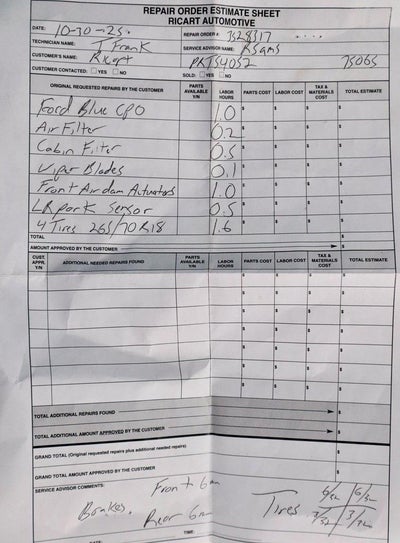 REPAIR ORDER ESTIMATE SHEET
RICART AUTOMOTIVE
DATE: 10-30-25. REPAIR ORDER #: 7528317
TECHNICIAN NAME: T Frank SERVICE ADVISOR NAME: RSams
CUSTOMER'S NAME: Ricart PRTS4052 75065
CUSTOMER CONTACTED: YES NO SOLD: YES NO
ORIGINAL REQUESTED REPAIRS BY THE CUSTOMER PARTS AVAILABLE Y/N LABOR HOURS PARTS COST LABOR COST TAX & MATERIALS COST TOTAL ESTIMATE
Ford Blue CPO 1.0 $ $ $ $
Air Filter 0.2 $ $ $ $
Cabin Filter 0.5 $ $ $ $
Wiper Blades 0.1 $ $ $ $
Front Air dam Actuators 1.0 $ $ $ $
LR park Sensor 0.5 $ $ $ $
4 Tires 265/70R18 1.6 $ $ $ $
TOTAL $
AMOUNT APPROVED BY THE CUSTOMER $
CUST. APPR. Y/N ADDITIONAL NEEDED REPAIRS FOUND PARTS AVAILABLE Y/N LABOR HOURS PARTS COST LABOR COST TAX & MATERIALS COST TOTAL ESTIMATE
$ $ $ $
$ $ $ $
$ $ $ $
$ $ $ $
$ $ $ $
$ $ $ $
$ $ $ $
TOTAL ADDITIONAL REPAIRS FOUND $
TOTAL ADDITIONAL AMOUNT APPROVED BY THE CUSTOMER $
GRAND TOTAL (Original requested repairs plus additional needed repairs) $
GRAND TOTAL AMOUNT APPROVED BY THE CUSTOMER $
SERVICE ADVISOR COMMENTS:
Brakes. Front 6m
Rear 6m
Tires 6/32 6/32
3/32 3/32
DATE TIME